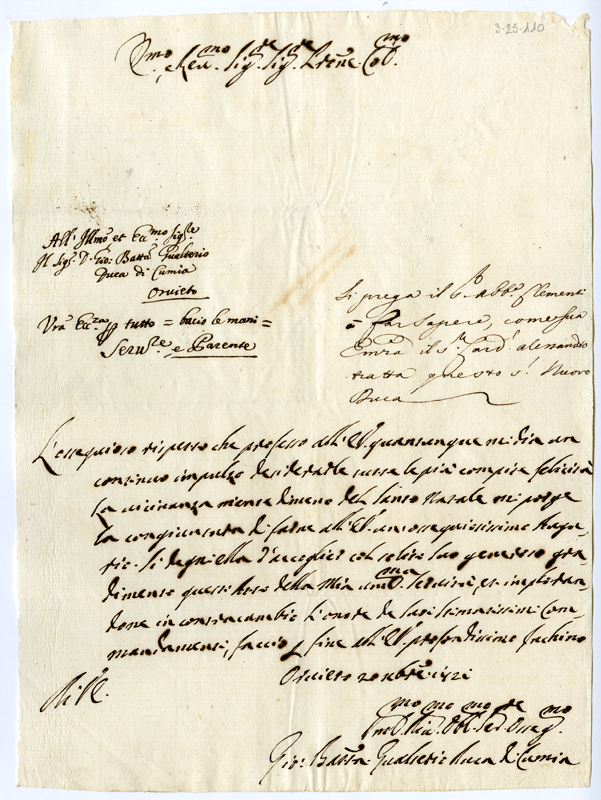 3-25-110
Emo e Reu. Sig. Sig.
All. Illmo et Ecc.mo Sig.re
Il Sigr. D. Gio: Batta Gualterio
Duca di Cumia
Orvieto
Vra Ecc.za p tutto = bacio le mani =
Seru.re e Parente
Si prega il Sr. abb.e Clementi
à far sapere, come sia
il Sr. Card. alesandro
tratta questo s. Nuovo
Duca
L'ossequioso rispetto che professo all' quantunque mi dia un
continuo impulso desiderarle tutte le più compite felicità
la vicinanza niente dimeno del Santo Natale mi porge
la congiuntura di farne all' un ossequiosissimo Augu-
rio. Si degni ella d'accoglier col solito suo generoso gra-
dimento quest' Atto della Mia Seruitù, et imperan-
done in contracambio l'onore de suoi stimatissimi Com-
mandamenti, faccio p fine all' profondissimo Inchino
Orvieto 20
mo mo mo re mo
Gio: Batta Gualterio Duca di Cumia